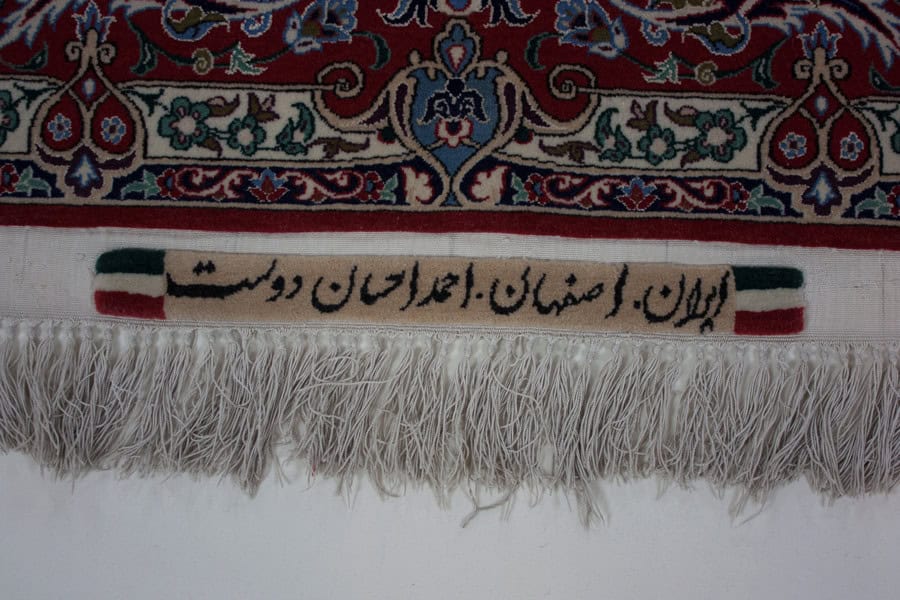 ایران . اصفهان . احمد احسان دوست